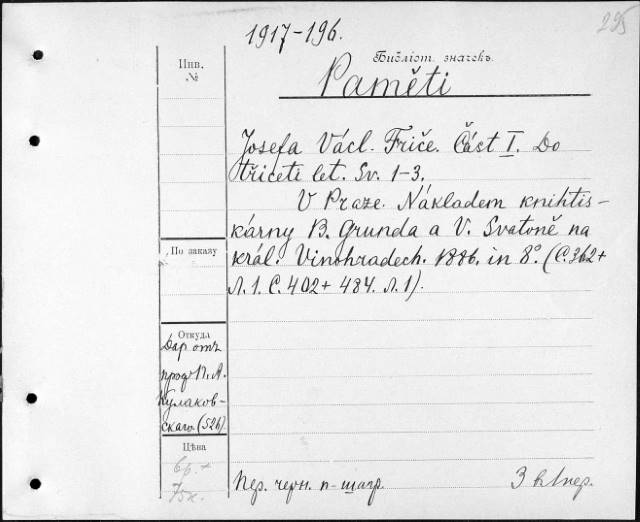 295
1917-196.
Инв.
№
Библіот. значекъ.
Paměti
Josefa Václ. Friče. Část I. Do
třiceti let. Sv. 1-3.
V Praze. Nákladem knihtis-
kárny B. Grunda a V. Svatoně na
král. Vinohradech. 1886. in 8º. (С. 362 +
Л. 1. С. 402 + 484. Л. 1).
По заказу
Откуда
Дар отъ
проф. П. А.
Кулаков-
скаго. (526).
Цѣна
6 р. +
75 к.
Пер. черн. п-шагр.
3 в 1 пер.